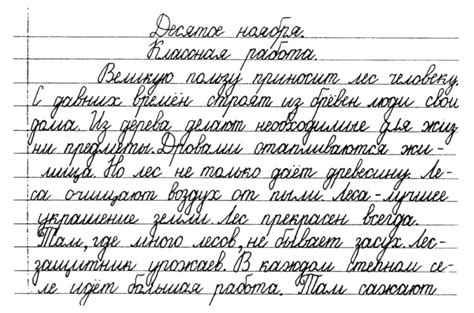 Десятое ноября.
Классная работа.
Великую пользу приносит лес человеку.
С давних времён строят из брёвен люди свои
дома. Из дерева делают необходимые для жиз
ни предметы. Дровами отапливаются жи-
лища. Но лес не только даёт древесину. Ле-
са очищают воздух от пыли. Леса-лучшее
украшение земли. Лес прекрасен всегда.
Там, где много лесов, не бывает засух. Лес-
защитник урожаев. В каждом степном се-
ле идёт большая работа. Там сажают